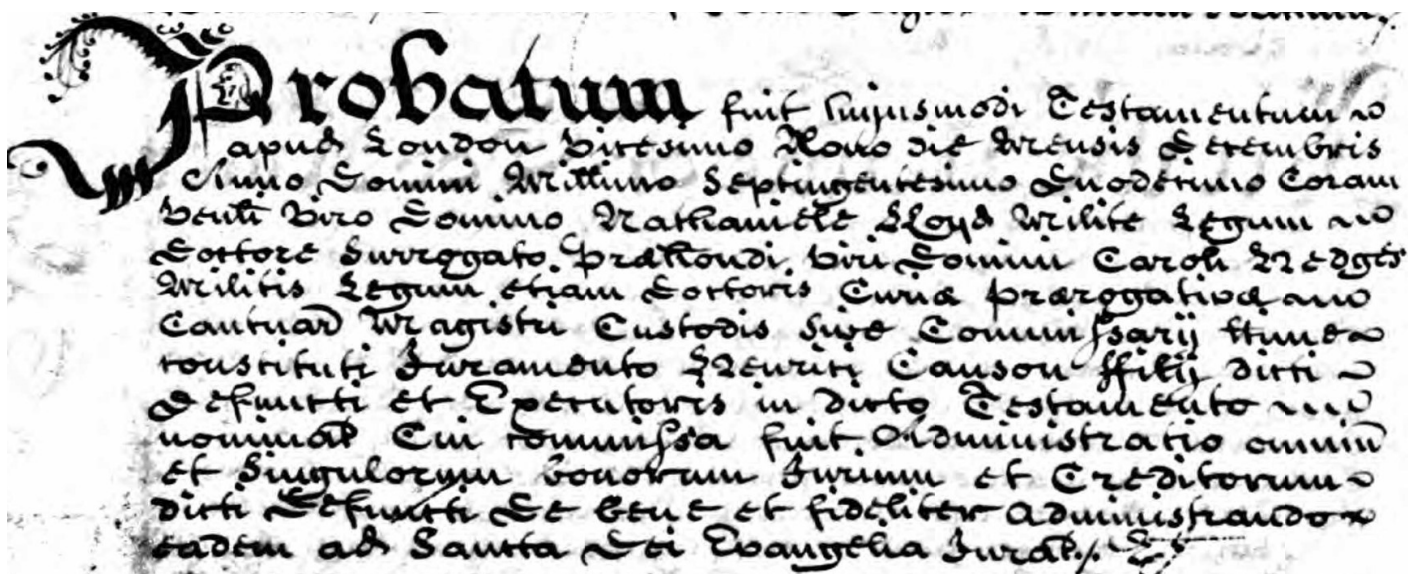 Probatum fuit hujusmodi Testamentum
apud London Vicesimo Nono die Mensis Decembris
Anno Domini Millimo Septingentesimo Duodecimo Coram
Venli Viro Domino Nathaniele Lloyd Milite Legum
Doctore Surrogato Præhondi Viri Domini Caroli Hedges
Militis Legum etiam Doctoris Curiæ Prærogativæ
Cantuar Magistri Custodis sive Commissarij ltime
constituti Juramento Henrici Causon ffilij dicti
Defuncti et Executoris in dicto Testamento
nominat Cui commissa fuit Administratio omniu
et Singulorum bonorum Jurium et Creditorum
dicti Defuncti De bene et fideliter Administrando
eadem ad Sancta Dei Evangelia Jurat